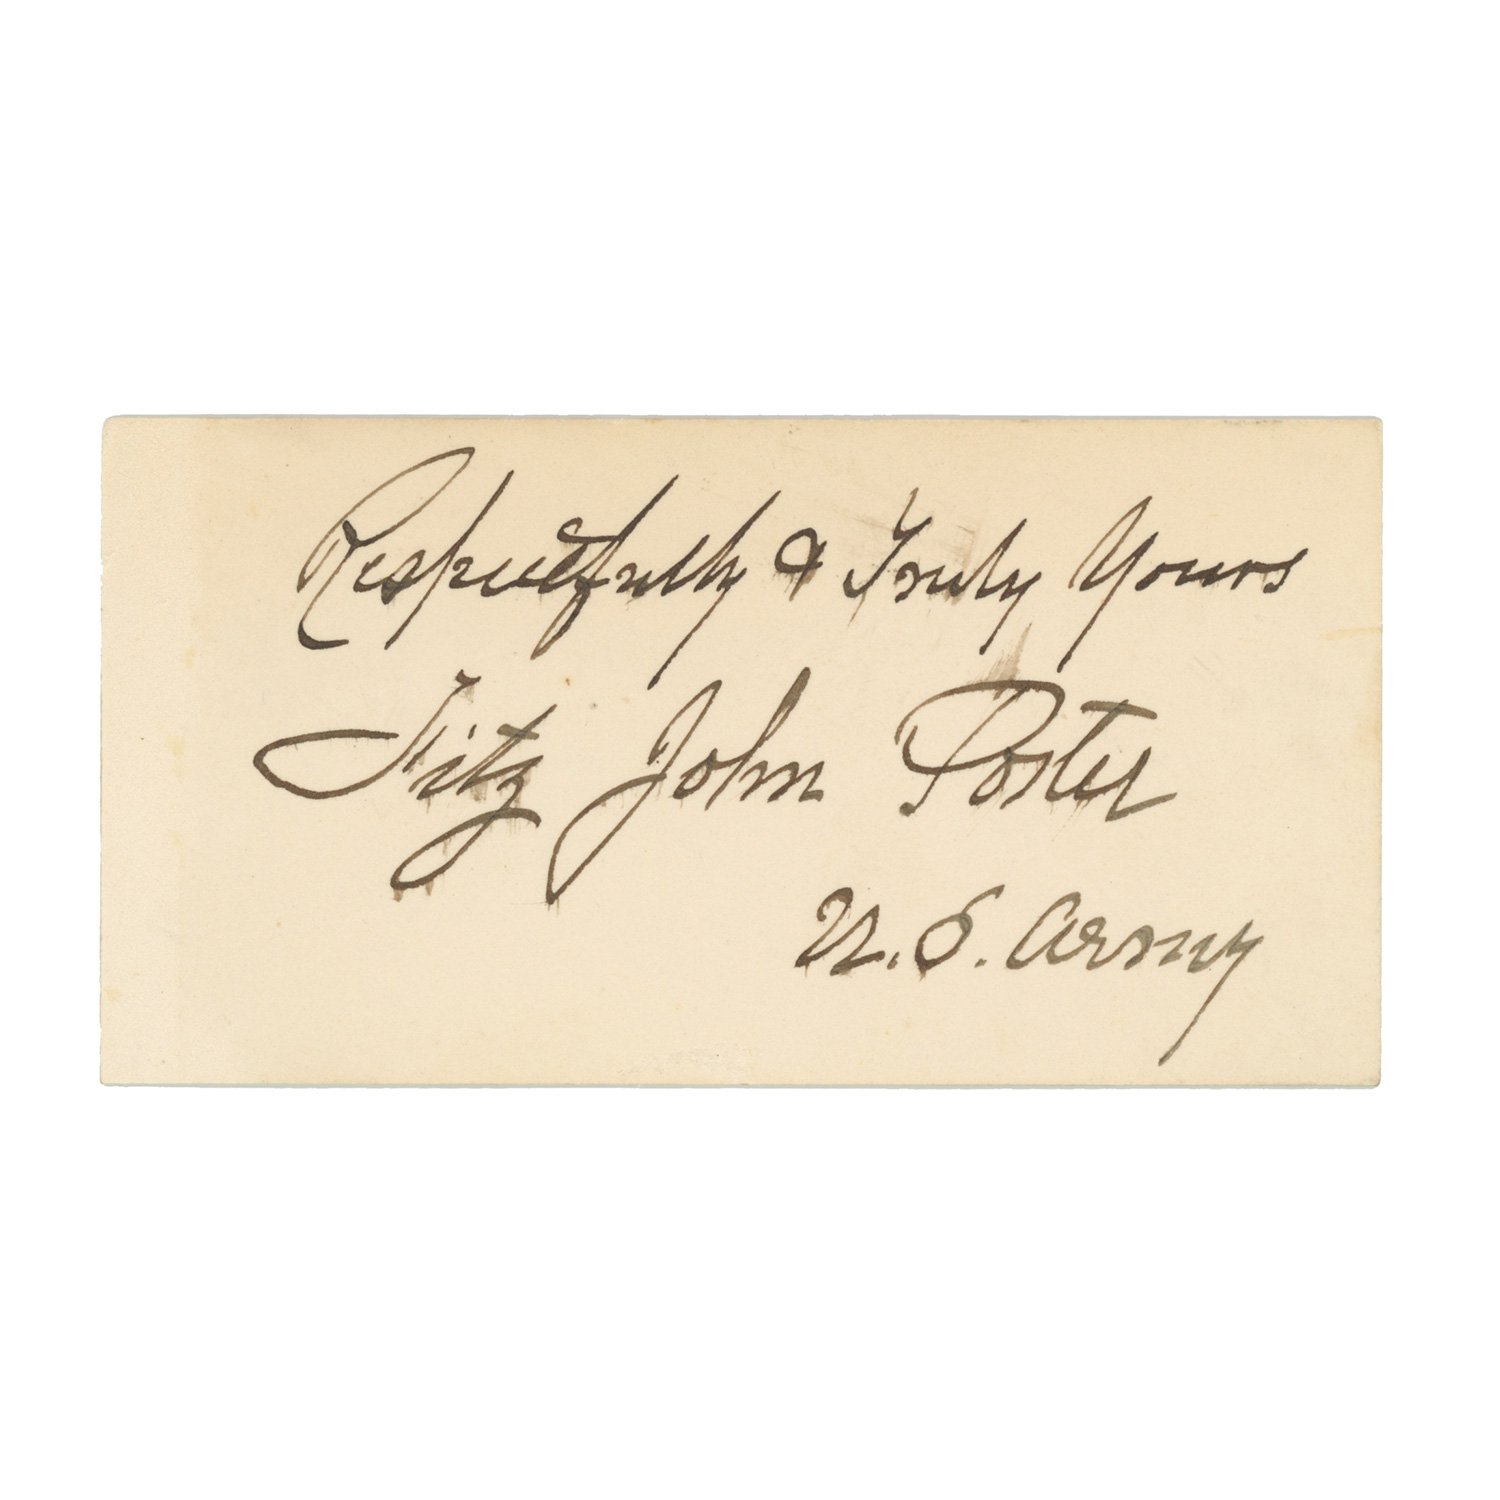 Respectfully & Truly Yours
Fitz John Porter
U.S. Army